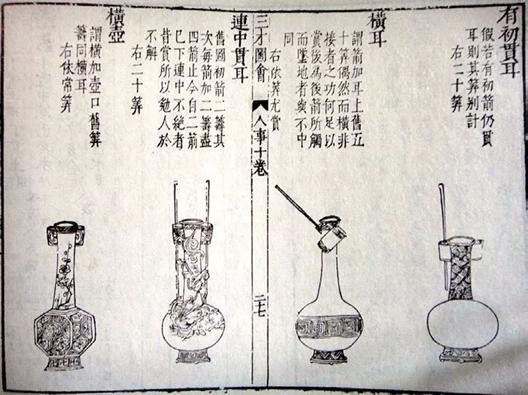 有初貫耳
假若有初箭仍貫
耳則其筭别計
右二十筭
橫耳
謂箭加耳上舊五
十筭偶然而橫非
接者之功何足以
賞後為後箭所觸
而墜地者與不中
同
右依筭 賞
三才圖會
人事十卷
二七
連中貫耳
舊圖初箭二籌其
次每箭加二籌盡
四箭止今自二箭
已下連中不絕者
皆賞所以勉人於
不解
右二十筭
橫壺
謂橫加壺口舊筭
籌同橫耳
右依常筭